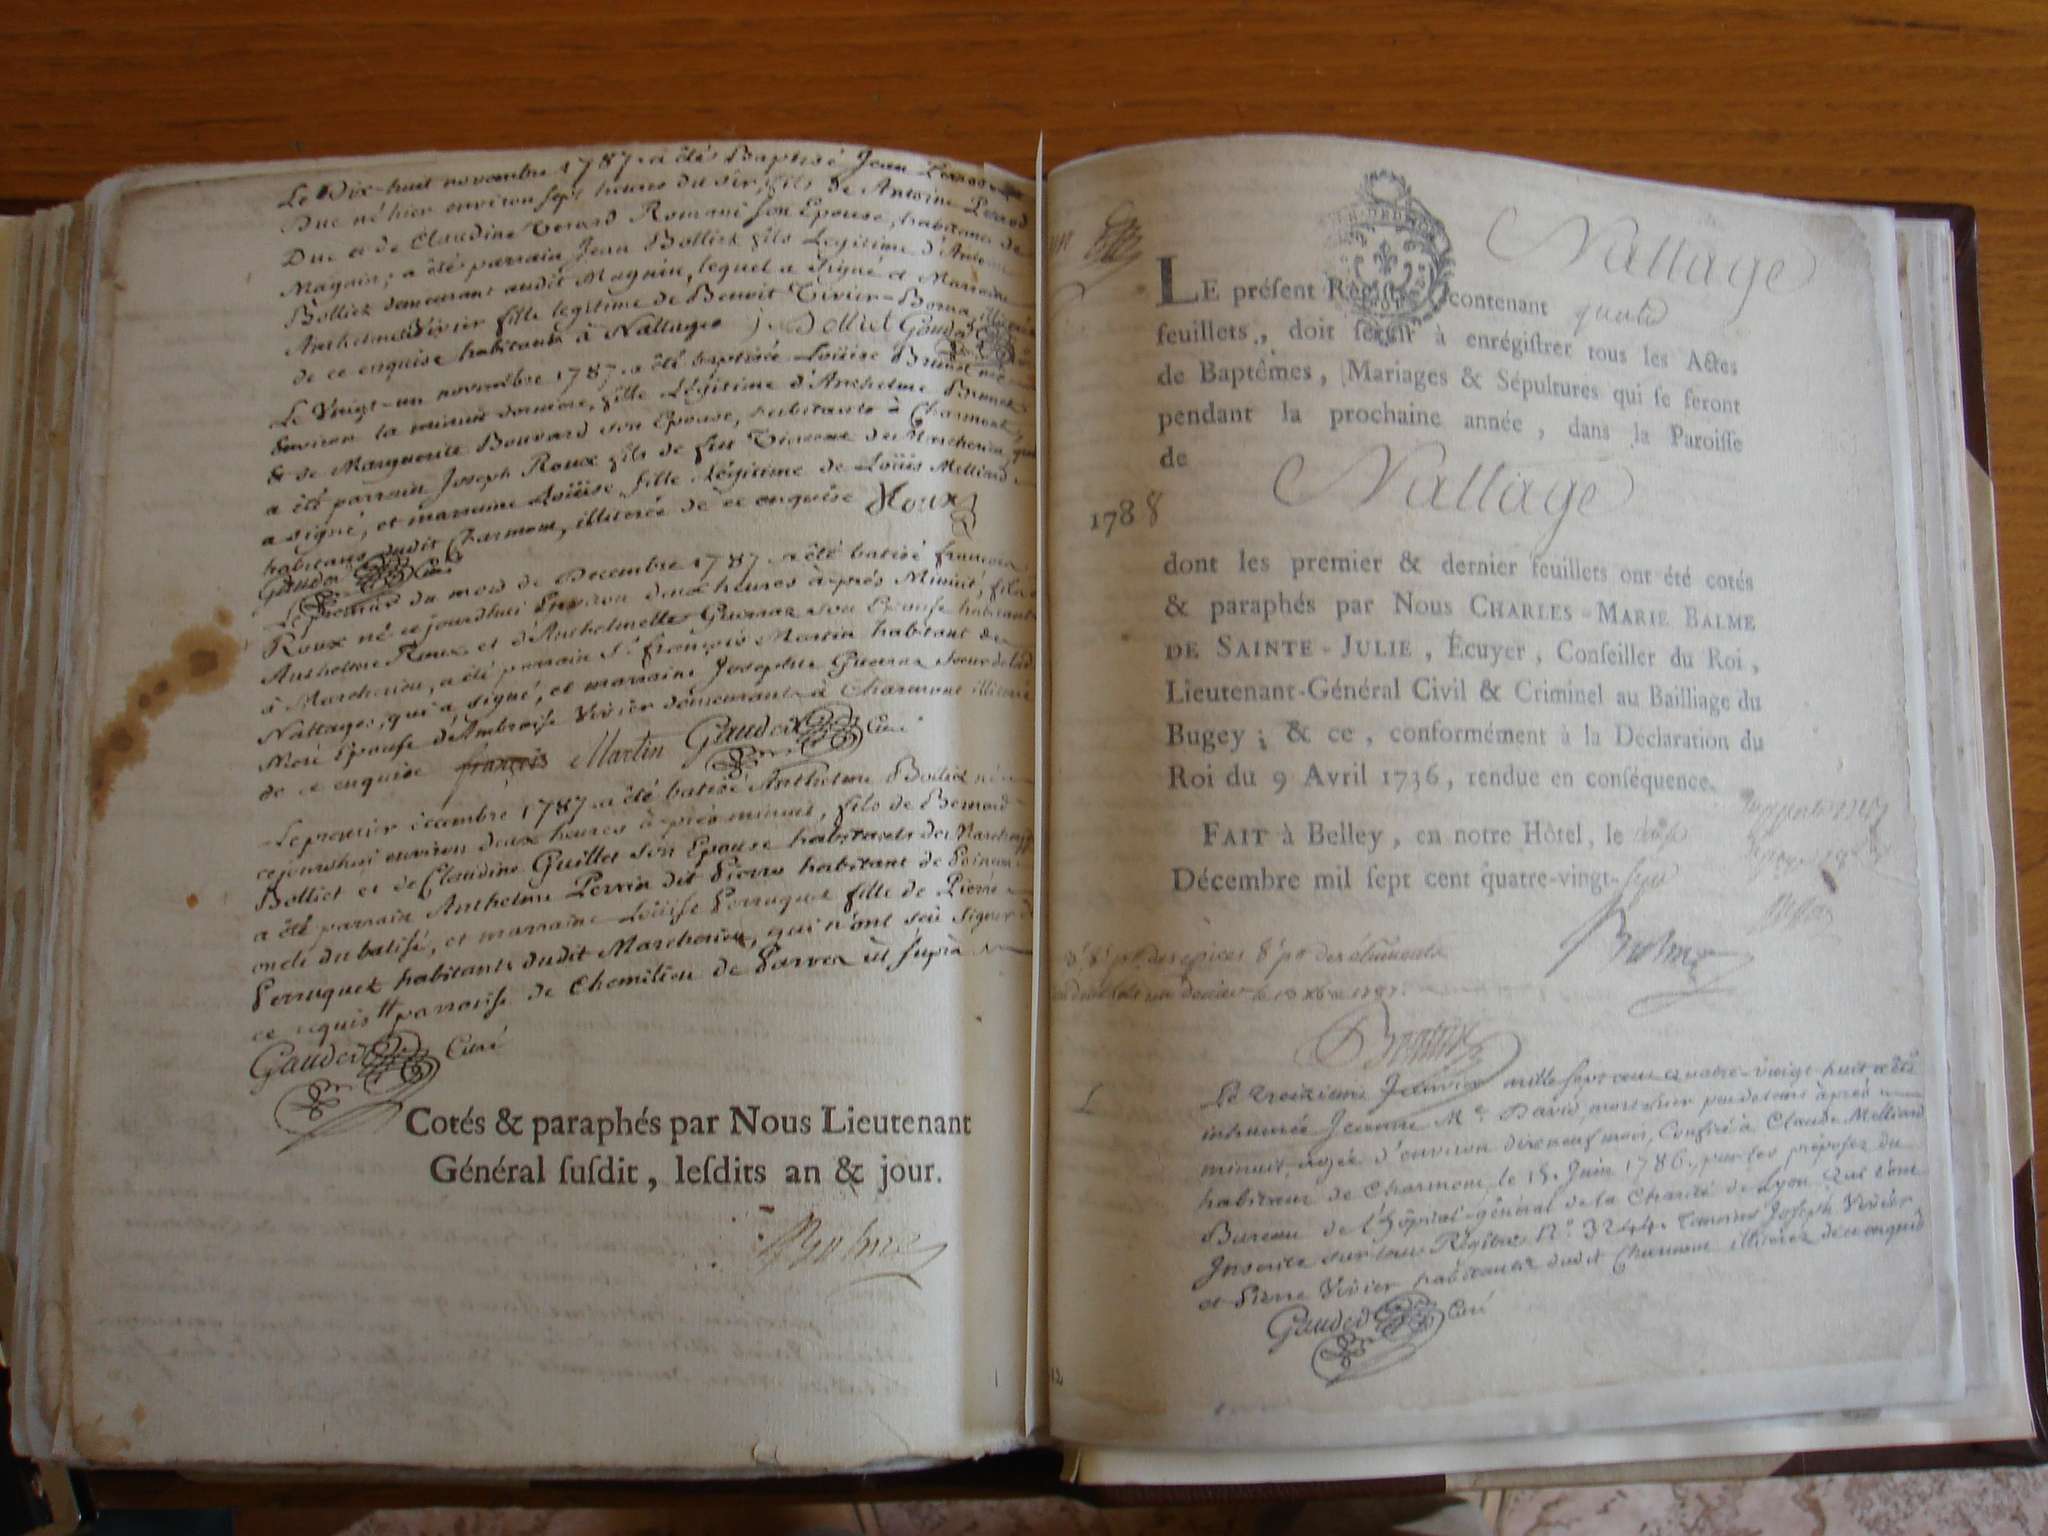 Le Dix-huit novembre 1787 a été Baptisé Jean Perrod
Duc né hier environ sept heures du soir, fils de Antoine Perrod
Duc et de Claudine Romani son Epouse, habitants de
Magnin; a été parrain Jean Bolliet fils Légitime d'Antoine
Bolliet demeurant audit Magnin, lequel a signé et Marraine
Anthelmette Vivier fille legitime de Benoit Vivier-Borna
de ce enquise habitants à Nattages J. Bolliet Gaudet
Le Vingt-un novembre 1787 a été baptisée Loüise Brunet née
Environ la minuit derniere, fille Légitime d'Anthelme Brunet
& de Marguerite Bouvard son Epouse, habitants à Charmont,
a été parrain Joseph Roux fils de feu de Marcheriou qui
a signé, et marraine Loüise fille Légitime de Loüis Melliand
habitants dudit Charmont, illiterée de ce enquise Roux
Gaudet Curé
Le premier du mois de Decembre 1787 a été batisé françois
Roux né ce jourdhui Environ deux heures après Minuit, fils d'
Anthelme Roux et d'Anthelmette Guerraz son Epouse habitants
à Marcheriou, a été parrain Sr. françois Martin habitant de
Nattages, qui a signé, et marraine Josephte Guerraz soeur de lad.
Mere Epouse d'Ambroise Vivier demeurante à Charmont illiterée
de ce enquise françois Martin Gaudet Curé
Le premier decembre 1787 a été batisé Anthelme Bolliet né
cejourdhui environ deux heures après minuit, fils de Bernard
Bolliet et de Claudine Guillet son Epouse habitants de Marcheriou
a été parrain Anthelme Perrin dit Pierre habitant de
oncle du batisé, et marraine Loüise Perruquet fille de Pierre
Perruquet habitants dudit Marcheriou, qui n'ont seü signer de
ce requis # parroisse de Chemilieu de Parves ut suprà
Gaudet Curé
Cotés & paraphés par Nous Lieutenant
Général susdit, lesdits an & jour.
Balme
Nattage
LE présent Registre contenant quatre
feuillets, doit servir à enrégistrer tous les Actes
de Baptêmes, Mariages & Sépultures qui se feront
pendant la prochaine année, dans la Paroisse
de Nattage
1788
dont les premier & dernier feuillets ont été cotés
& paraphés par Nous CHARLES-MARIE BALME
DE SAINTE-JULIE, Écuyer, Conseiller du Roi,
Lieutenant-Général Civil & Criminel au Bailliage du
Bugey; & ce, conformément à la Déclaration du
Roi du 9 Avril 1736, rendue en conséquence.
FAIT à Belley, en notre Hôtel, le
Décembre mil sept cent quatre-vingt-sept
Balme
Le troizieme Janvier mille sept cent quatre-vingt-huit a été
inhumée Jeanne Me. David, morte hier deux heures après
minuit, agée d'environ dix neuf mois, Confiée à Claude Melliand
habitant de Charmont, le 15. Juin 1786. par les préposez du
Bureau de l'hôpital-général de la Charité de Lyon qui l'ont
Inscrite sur leur Régitre No. 3244. Temoins Joseph Vivier
et Pierre Vivier habitants dudit Charmont illiterez de ce enquis
Gaudet Curé